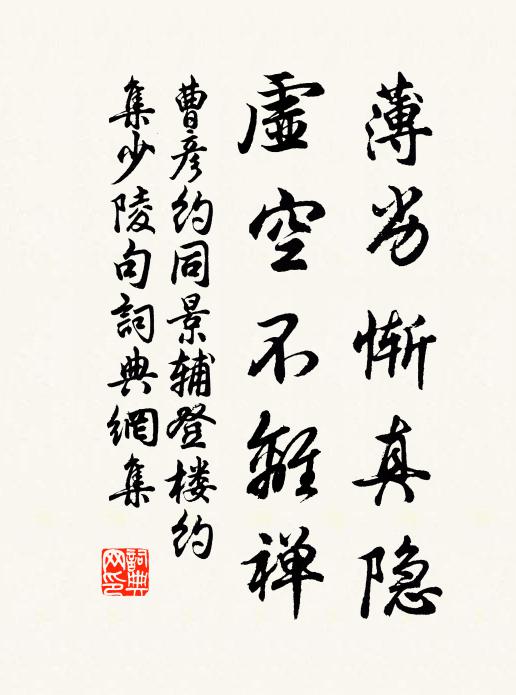 薄劣惭真隐
虚空不離禅
曹彦约同景辅登楼约
集少陵句詞典網集
詞典网印